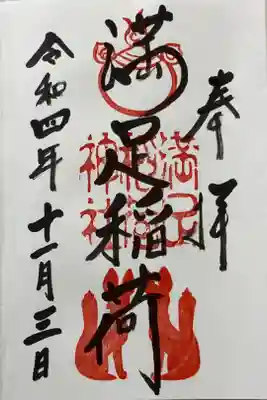 奉拝
満足稲荷
満足稲荷神社
令和四年十一月三日